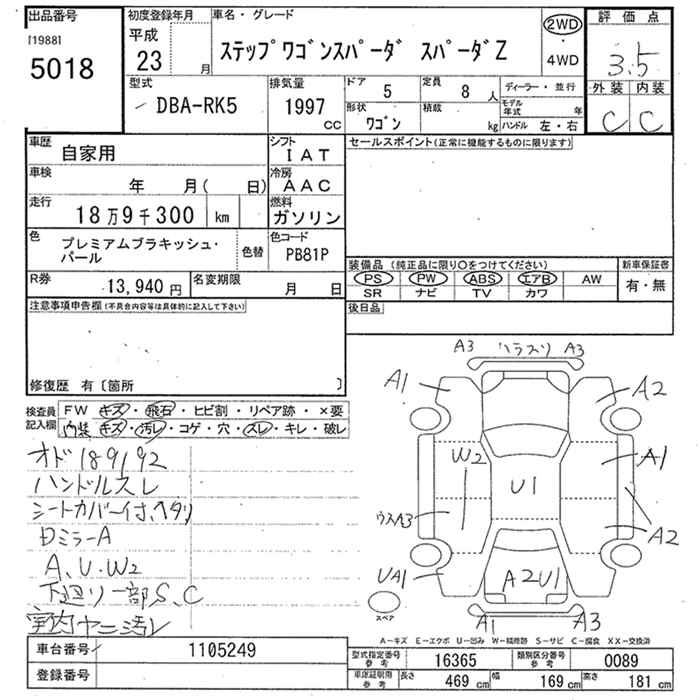 出品番号
[1988]
5018
初度登録年月
平成
23 月
車名・グレード
ステップワゴンスパーダ スパーダZ
2WD
・
4WD
評価点
3.5
外装 内装
C C
型式
DBA-RK5
排気量
1997
CC
ドア
5
定員
8 人
形状
ワゴン
積載
kg
ディーラー・並行
モデル年式 年
ハンドル 左・右
車歴
自家用
シフト
IAT
車検
年 月( 日)
冷房
AAC
走行
18万9千300 km
燃料
ガソリン
色
プレミアムブラキッシュ・パール
色替
色コード
PB81P
R券
13,940 円
名変期限
月 日
セールスポイント(正常に機能するものに限ります)
装備品(純正品に限り○をつけてください)
新車保証書
PS PW ABS エアB AW
有・無
SR ナビ TV カワ
後日品
注意事項申告欄(不具合内容等は具体的に記入して下さい)
修復歴 有〔箇所 〕
検査員
記入欄
FW キズ・飛石・ヒビ割・リペア跡・×要
内装 キズ・汚レ・コゲ・穴・スレ・キレ・破レ
オド189192
ハンドルスレ
シートカバー付、ヘタリ
Dミラー A
A、U、W2
下廻リ一部S、C
室内ヤニ汚レ
A3 ハラスリ A3
A1
A2
W2
A1
U1
ウスA3
A2
UA1
A2U1
スペア
A1
A3
A-キズ E-エクボ U-凹み W-補修跡 S-サビ C-腐食 XX-交換済
車台番号
1105249
登録番号
型式指定番号
参考
16365
類別区分番号
参考
0089
車庫証明用
参考
長さ
469 cm
幅
169 cm
高さ
181 cm